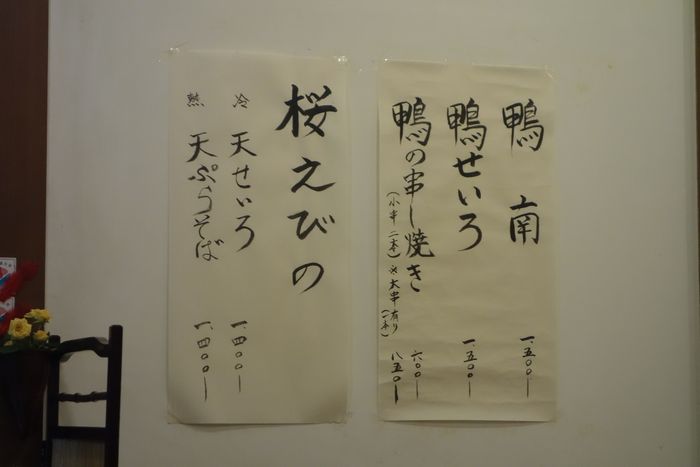 鴨南 一、五〇〇ー
鴨せいろ 一、五〇〇ー
鴨の串し焼き 六〇〇ー
(小串二本)※大串有り(一本) 八五〇ー
桜えびの
冷 天せいろ 一、四〇〇ー
熱 天ぷらそば 一、四〇〇ー